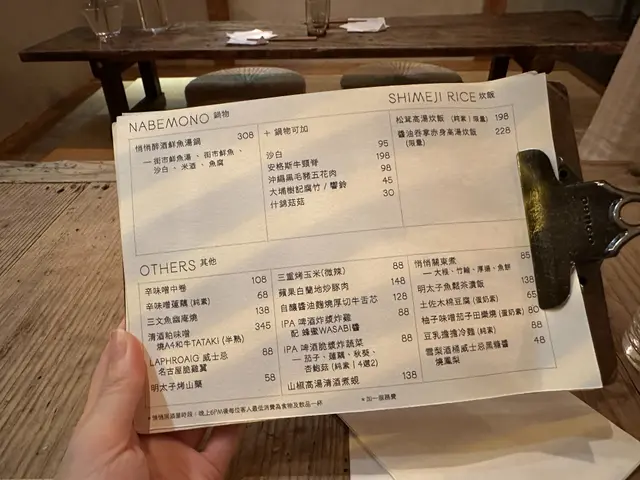 NABEMONO 鍋物
悄悄醉酒鮮魚湯鍋 308
— 街市鮮魚湯、街市鮮魚、
沙白、米酒、魚腐
+ 鍋物可加
沙白 95
安格斯牛頸脊 198
沖繩黑毛豬五花肉 98
大埔樹記腐竹 / 響鈴 45
什錦菇菇 30
SHIMEJI RICE 炊飯
松茸高湯炊飯 (純素 | 限量) 198
醬油吞拿赤身高湯炊飯 228
(限量)
OTHERS 其他
辛味噌中卷 108
辛味噌蓮藕 (純素) 68
三文魚幽庵燒 138
清酒粕味噌 345
燒A4和牛TATAKI (半熟)
LAPHROAIG 威士忌 88
名古屋脆雞翼
明太子烤山藥 58
三重烤玉米(微辣) 88
蘋果白蘭地炒豚肉 148
自釀醬油麴燒厚切牛舌芯 128
IPA 啤酒炸漿炸雞 88
配 蜂蜜WASABI醬
IPA 啤酒脆漿炸蔬菜 88
— 茄子、蓮藕、秋葵、
杏鮑菇 (純素 | 4選2)
山椒高湯清酒煮蜆 138
悄悄關東煮 85
— 大根、竹輪、厚揚、魚餅
明太子魚鬆茶漬飯 138
土佐木綿豆腐 (蛋奶素) 65
柚子味噌茄子田樂燒 (蛋奶素) 80
豆乳擔擔冷麵 (純素) 88
雪梨酒桶威士忌黑糖醬 48
燒鳳梨
*悄悄居酒屋時段：晚上6PM後每位客人最低消費為食物及飲品一杯
*加一服務費